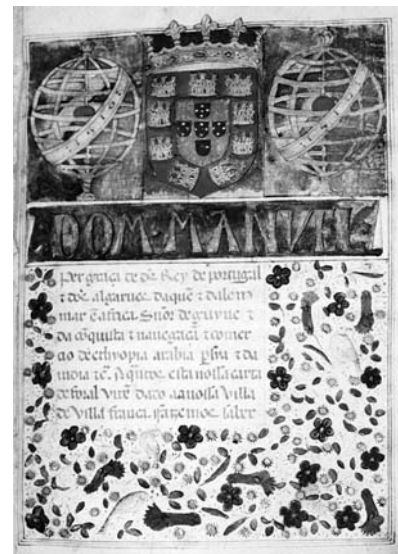 DOM·MANVEL
Per graça de ds̃ Rey de portugal
⁊ dos̃ algarues. daquẽ ⁊ dalem
mar ẽ africa. Sñor de guyne ⁊
da cõquista ⁊ nauegaçã ⁊ comer
cio de ethyopia arabia ꝑsya ⁊ da
india ⁊c̃. A quãtos esta nossa carta
de foral virẽ dado aa nossa villa
de villa franca. fazemos saber